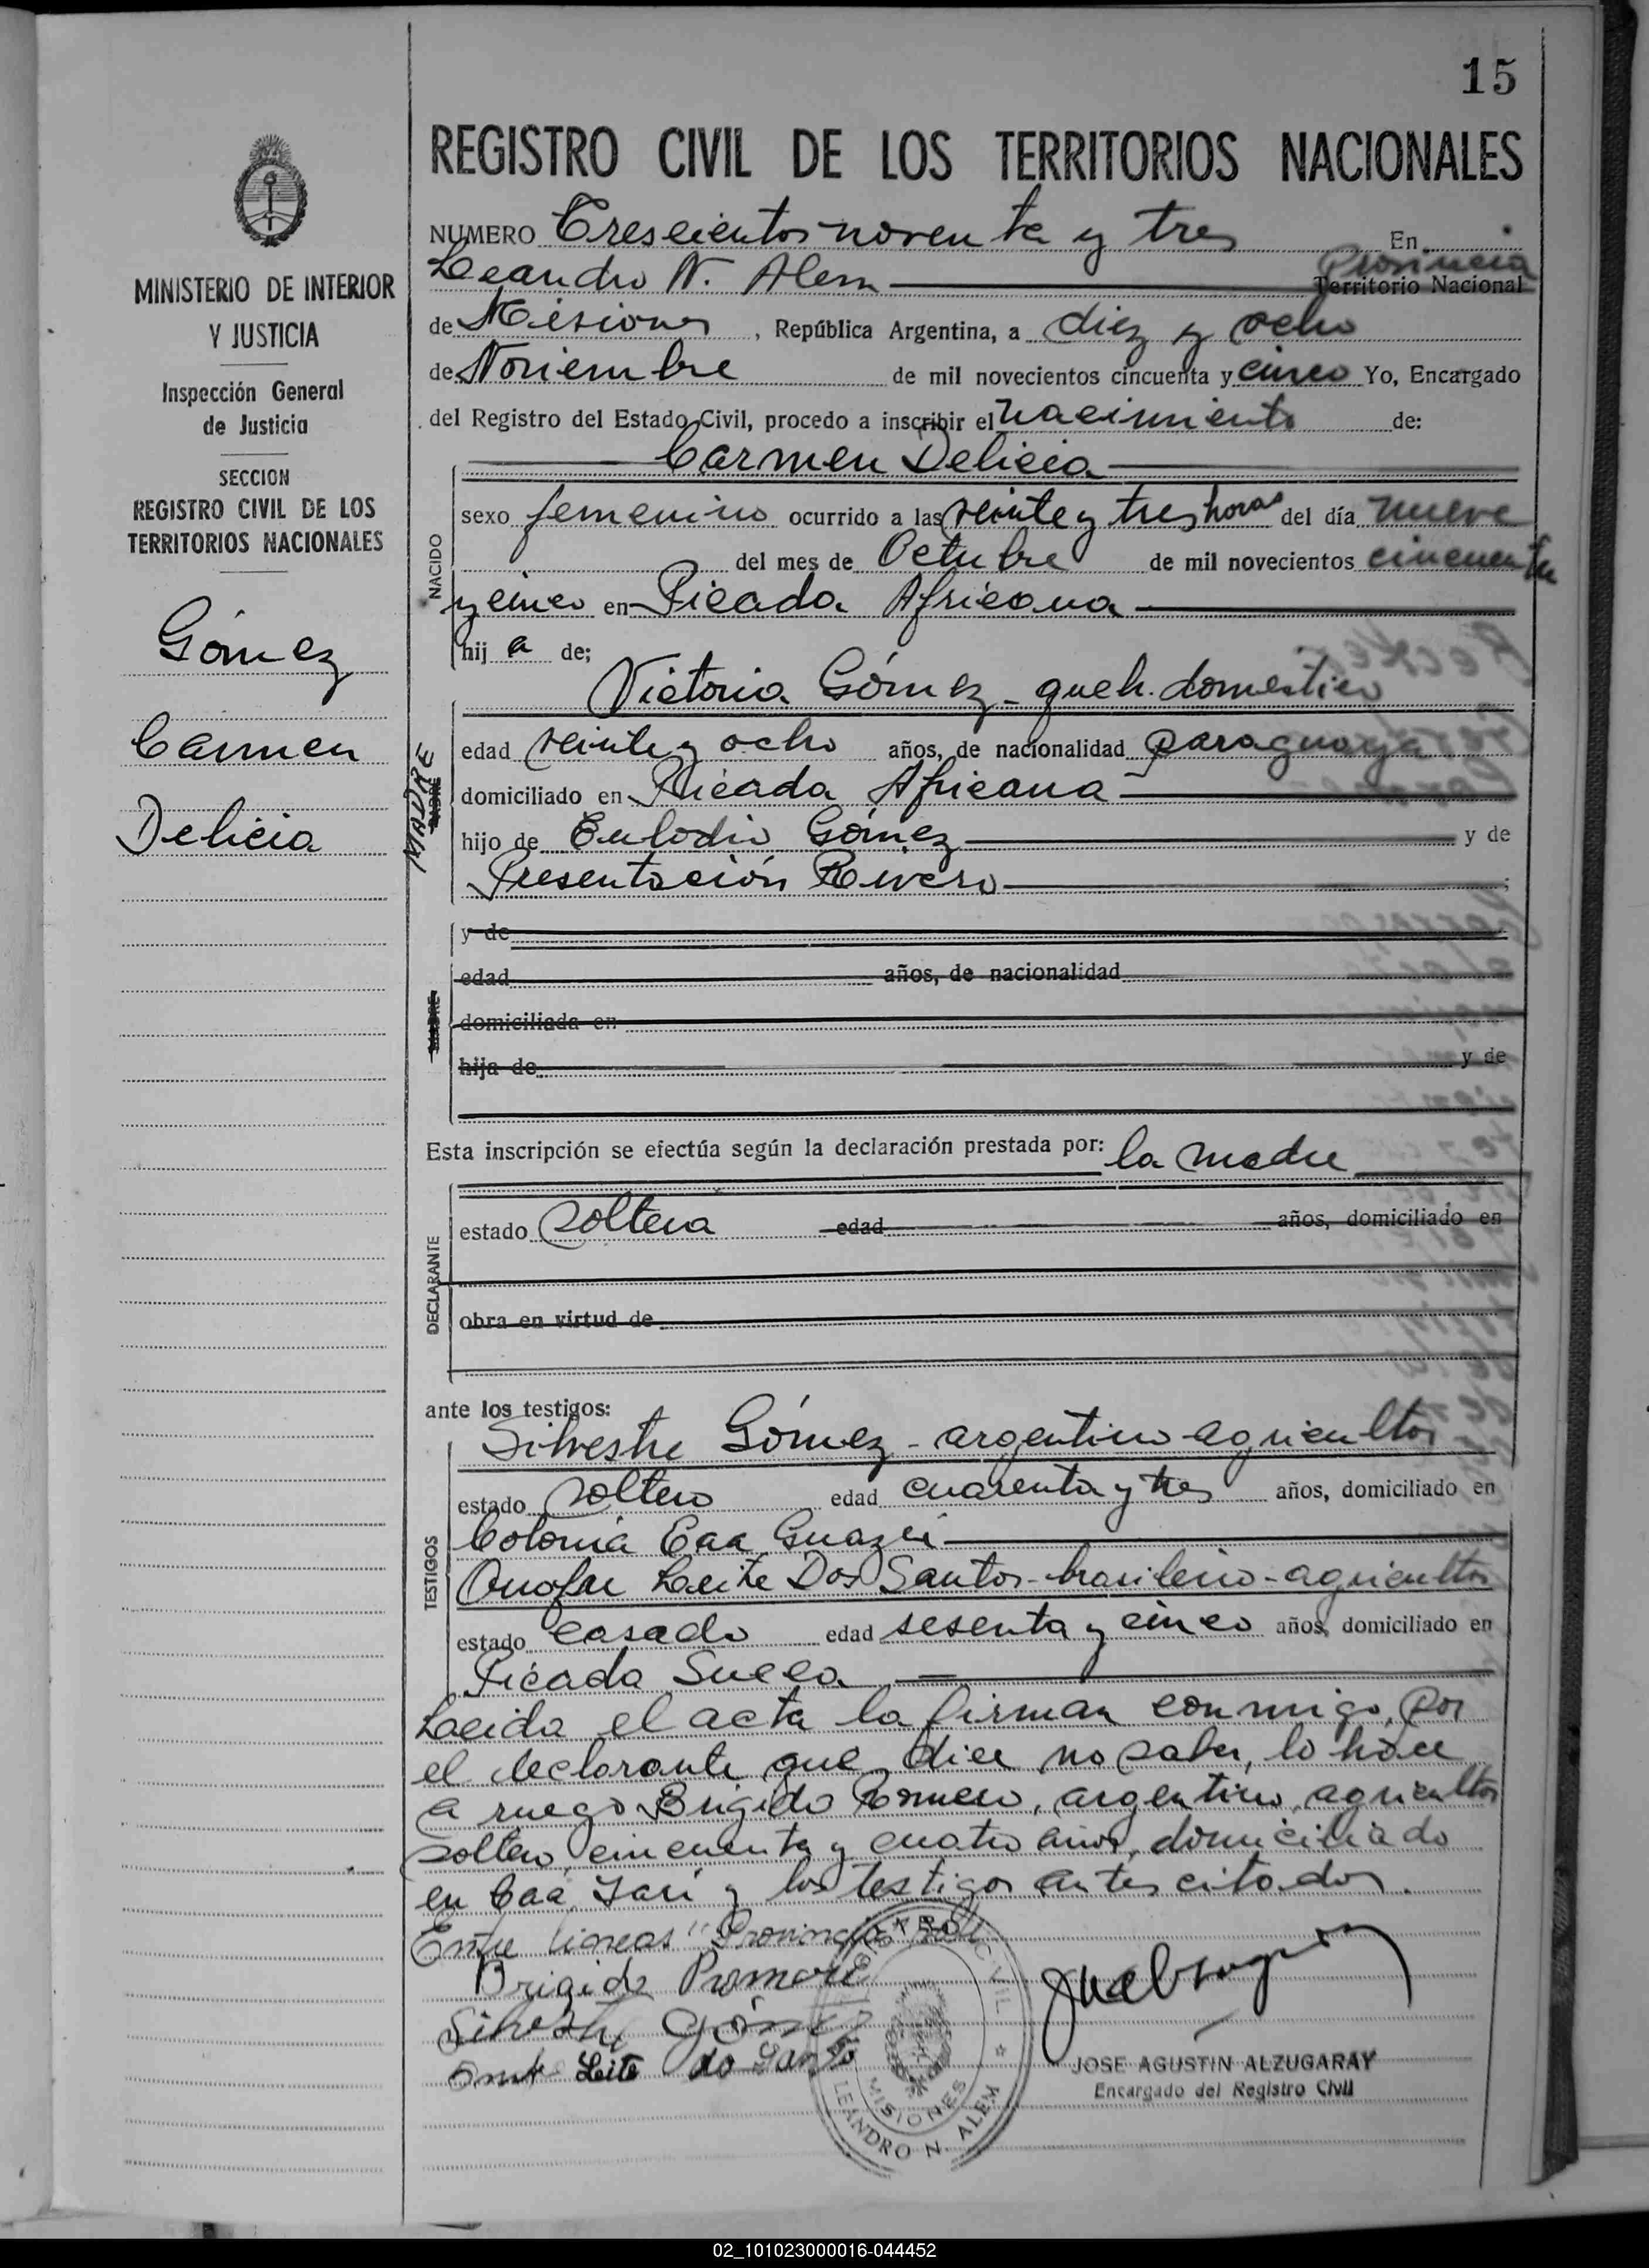 15
REGISTRO CIVIL DE LOS TERRITORIOS NACIONALES
MINISTERIO DE INTERIOR
Y JUSTICIA
Inspección General
de Justicia
SECCION
REGISTRO CIVIL DE LOS
TERRITORIOS NACIONALES
Gómez
Carmen
Delicia
NUMERO Trescientos noventa y tres En
Leandro N. Alem Provincia
Territorio Nacional
de Misiones, República Argentina, a diez y ocho
de Noviembre de mil novecientos cincuenta y cinco Yo, Encargado
del Registro del Estado Civil, procedo a inscribir el nacimiento de:
Carmen Delicia
NACIDO
sexo femenino ocurrido a las veinte y tres horas del día nueve
del mes de Octubre de mil novecientos cincuenta
y cinco en Picada Africana
hij a de;
Victoria Gómez - queh. domestico
MADRE
PADRE
edad veinte y ocho años, de nacionalidad paraguaya
domiciliado en Picada Africana
hijo de Eulodio Gómez y de
Presentación Rivero ;
y de
MADRE
edad años, de nacionalidad
domiciliada en
hija de y de
Esta inscripción se efectúa según la declaración prestada por: la madre
DECLARANTE
estado soltera edad años, domiciliado en
obra en virtud de
ante los testigos:
TESTIGOS
Silvestre Gómez - argentino - agricultor
estado soltero edad cuarenta y tres años, domiciliado en
Colonia Caa Guazú
Onofre Leite Dos Santos - brasileño - agricultor
estado casado edad sesenta y cinco años, domiciliado en
Picada Sueca
Leida el acta la firman conmigo, por
el declarante que dice no saber, lo hace
a ruego Brigido Romero, argentino, agricultor
soltero, cincuenta y cuatro años, domiciliado
en Caá Yarí y los testigos antes citados.
Entre lineas "Provincia" Vale
Brigido Romero
Silvestre Gómez
Leite do Santo
REGISTRO CIVIL
MISIONES
LEANDRO N. ALEM
JOSE AGUSTIN ALZUGARAY
Encargado del Registro Civil
02_101023000016-044452